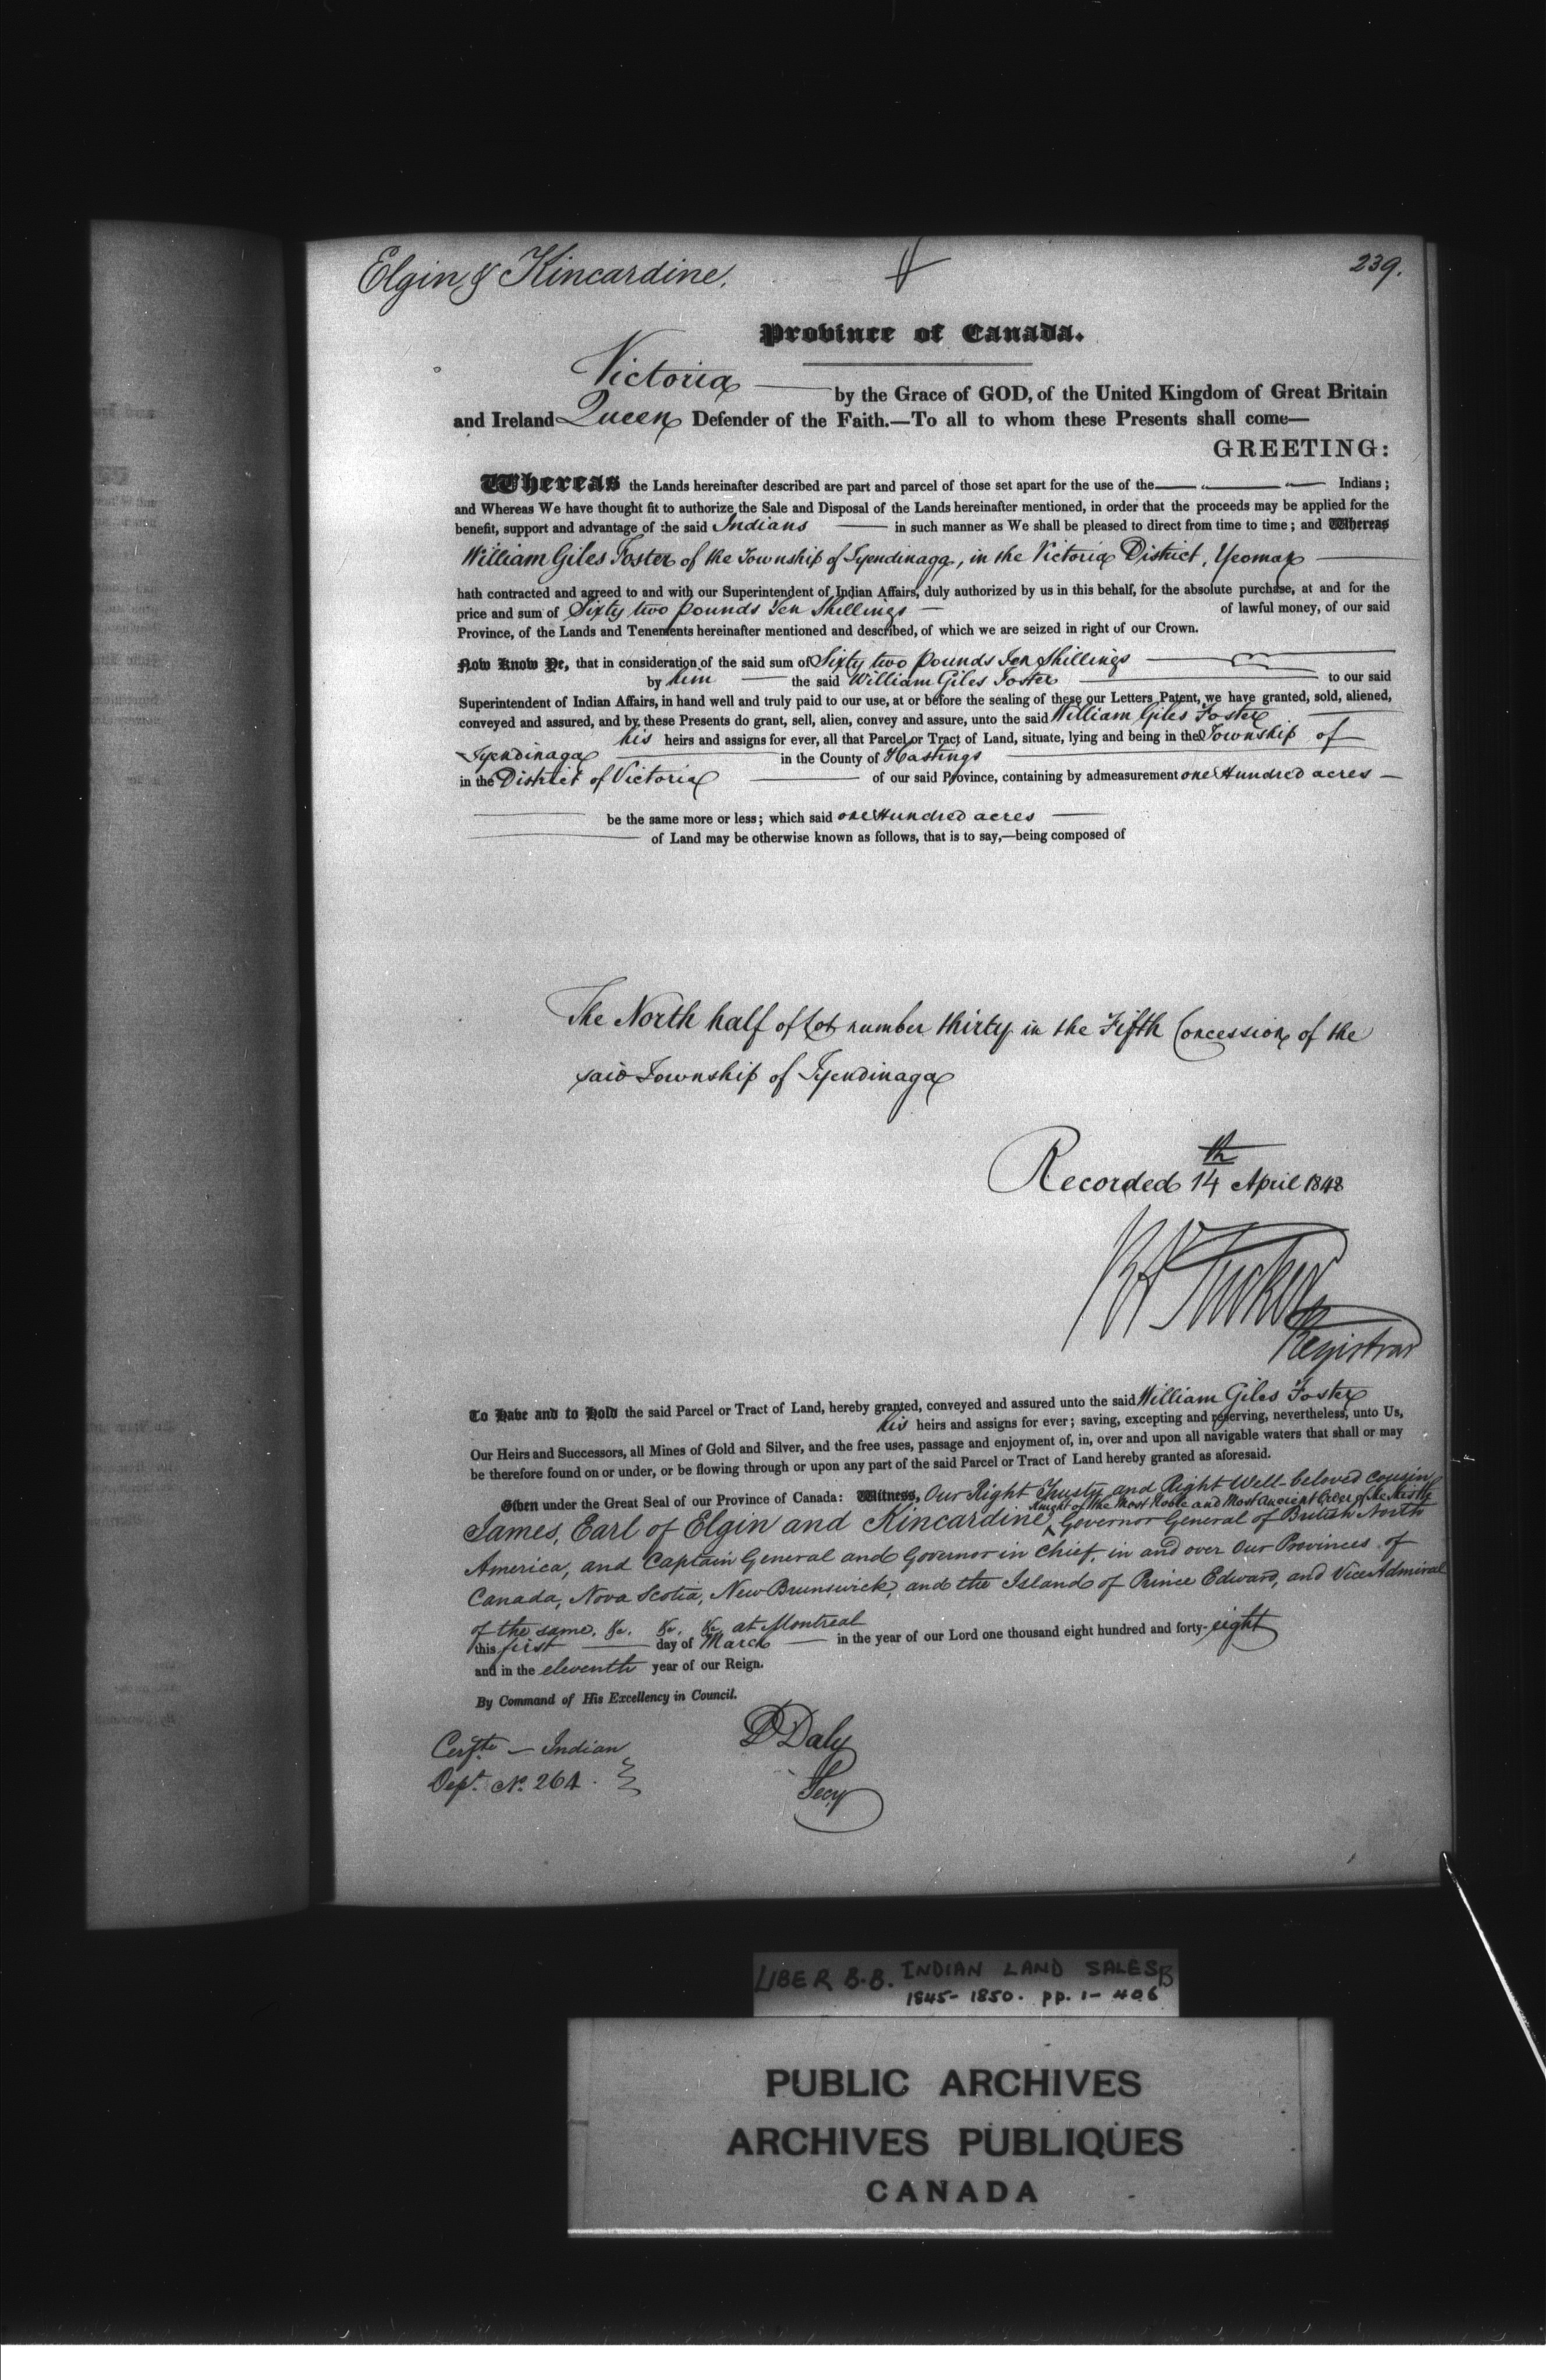 Elgin & Kincardine.
239.
Province of Canada.
Victoria by the Grace of GOD, of the United Kingdom of Great Britain
and Ireland Queen Defender of the Faith.—To all to whom these Presents shall come—
GREETING:
Whereas the Lands hereinafter described are part and parcel of those set apart for the use of the Indians;
and Whereas We have thought fit to authorize the Sale and Disposal of the Lands hereinafter mentioned, in order that the proceeds may be applied for the
benefit, support and advantage of the said Indians in such manner as We shall be pleased to direct from time to time; and Whereas
William Giles Foster of the Township of Tyendinaga, in the Victoria District, Yeoman
hath contracted and agreed to and with our Superintendent of Indian Affairs, duly authorized by us in this behalf, for the absolute purchase, at and for the
price and sum of Sixty two pounds Ten Shillings of lawful money, of our said
Province, of the Lands and Tenements hereinafter mentioned and described, of which we are seized in right of our Crown.
Now Know Ye, that in consideration of the said sum of Sixty two pounds Ten Shillings
by him the said William Giles Foster to our said
Superintendent of Indian Affairs, in hand well and truly paid to our use, at or before the sealing of these our Letters Patent, we have granted, sold, aliened,
conveyed and assured, and by these Presents do grant, sell, alien, convey and assure, unto the said William Giles Foster
his heirs and assigns for ever, all that Parcel or Tract of Land, situate, lying and being in the Township of
Tyendinaga in the County of Hastings
in the District of Victoria of our said Province, containing by admeasurement one Hundred acres
be the same more or less; which said one Hundred acres
of Land may be otherwise known as follows, that is to say,—being composed of
The North half of Lot number thirty in the Fifth Concession of the
said Township of Tyendinaga
Recorded 14th April 1848
R A Tucker
Registrar
To Have and to Hold the said Parcel or Tract of Land, hereby granted, conveyed and assured unto the said William Giles Foster
his heirs and assigns for ever; saving, excepting and reserving, nevertheless, unto Us,
Our Heirs and Successors, all Mines of Gold and Silver, and the free uses, passage and enjoyment of, in, over and upon all navigable waters that shall or may
be therefore found on or under, or be flowing through or upon any part of the said Parcel or Tract of Land hereby granted as aforesaid.
Given under the Great Seal of our Province of Canada: Witness, Our Right Trusty and Right Well-beloved cousin
Knight of the Most Noble and Most Ancient Order of the Thistle
James, Earl of Elgin and Kincardine, Governor General of British North
America, and Captain General and Governor in Chief, in and over Our Provinces of
Canada, Nova Scotia, New Brunswick, and the Island of Prince Edward, and Vice Admiral
of the same. &c. &c. &c. at Montreal
this first day of March in the year of our Lord one thousand eight hundred and forty-eight
and in the eleventh year of our Reign.
By Command of His Excellency in Council.
D Daly
Secy
Cerfte — Indian
Dept. No. 264.
LIBER B.B. INDIAN LAND SALES B
1845-1850. pp. 1-406
PUBLIC ARCHIVES
ARCHIVES PUBLIQUES
CANADA